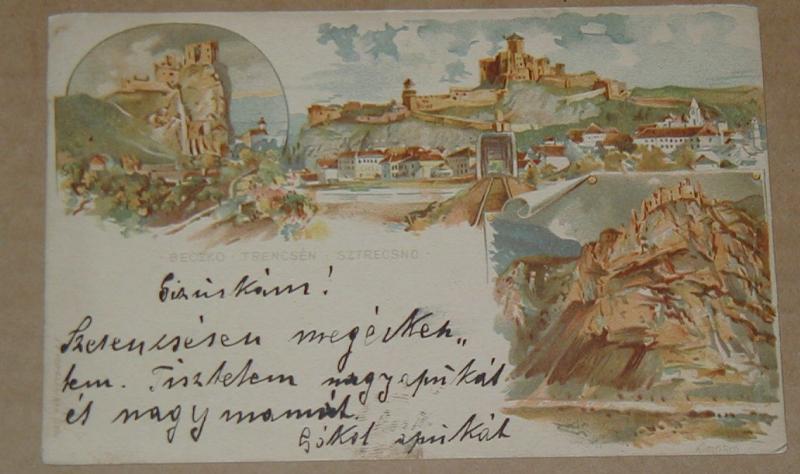 BECZKO · TRENCSÉN · SZTRECSNO
Gizuskám!
Szerencsésen megérkez„
tem. Tisztelem nagyapukát
és nagymamát.
Csókol apukát